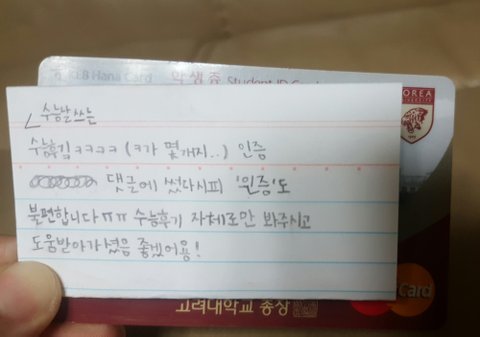 KEB Hana Card 학생증 Student ID Card
KOREA
UNIVERSITY
수능날 쓰는
수능후기ㅋㅋㅋㅋ (ㅋ가 몇개지..) 인증
댓글에 썼다시피 '인증'도
불편합니다ㅠㅠ 수능후기 자체로만 봐주시고
도움받아가셨음 좋겠어용!
고려대학교 총장